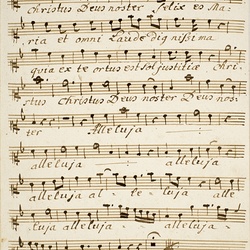 Christus Deus noster Felix es Ma-
ria et omni Laude dignissima
quia ex te ortus est sol justitiæ Chri-
stus Christus Deus noster Deus nos-
ter Alleluja
alleluja alleluja
alleluja al - te - luja alle
luja alleluja alleluja